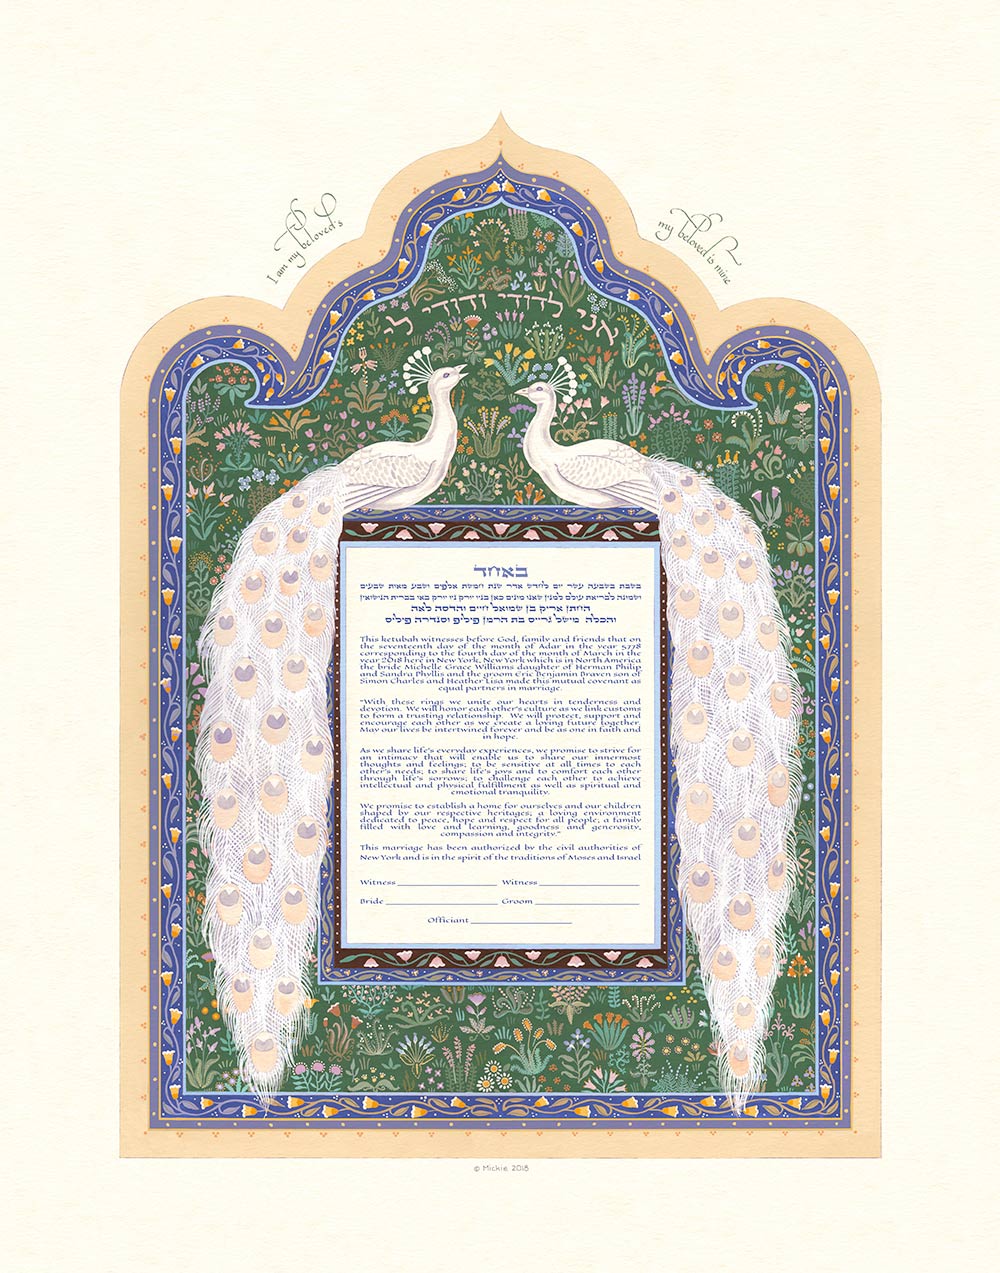 I am my beloved's
my beloved is mine
אני לדודי ודודי לי
באחד
בשבת בשבעה עשר יום לחדש אדר שנת חמשת אלפים ושבע מאות שבעים
ושמונה לבריאת עולם למנין שאנו מונים כאן בניו יורק ניו יורק באו בברית הנישואין
החתן אריק בן שמואל חיים והדסה לאה
והכלה מישל גרייס בת הרמן פיליפ וסנדרה פיליס
This ketubah witnesses before God, family and friends that on
the seventeenth day of the month of Adar in the year 5778
corresponding to the fourth day of the month of March in the
year 2018 here in New York, New York which is in North America
the bride Michelle Grace Williams daughter of Herman Philip
and Sandra Phyllis and the groom Eric Benjamin Braven son of
Simon Charles and Heather Lisa made this mutual covenant as
equal partners in marriage.
"With these rings we unite our hearts in tenderness and
devotion. We will honor each other's culture as we link customs
to form a trusting relationship. We will protect, support and
encourage each other as we create a loving future together.
May our lives be intertwined forever and be as one in faith and
in hope.
As we share life's everyday experiences, we promise to strive for
an intimacy that will enable us to share our innermost
thoughts and feelings; to be sensitive at all times to each
other's needs; to share life's joys and to comfort each other
through life's sorrows; to challenge each other to achieve
intellectual and physical fulfillment as well as spiritual and
emotional tranquility.
We promise to establish a home for ourselves and our children
shaped by our respective heritages; a loving environment
dedicated to peace, hope and respect for all people; a family
filled with love and learning, goodness and generosity,
compassion and integrity."
This marriage has been authorized by the civil authorities of
New York and is in the spirit of the traditions of Moses and Israel
Witness ____________ Witness ____________
Bride ____________ Groom ____________
Officiant ____________
© Mickie 2018